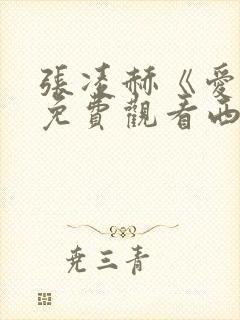 張凌赫《愛
免費觀看西
堯三青